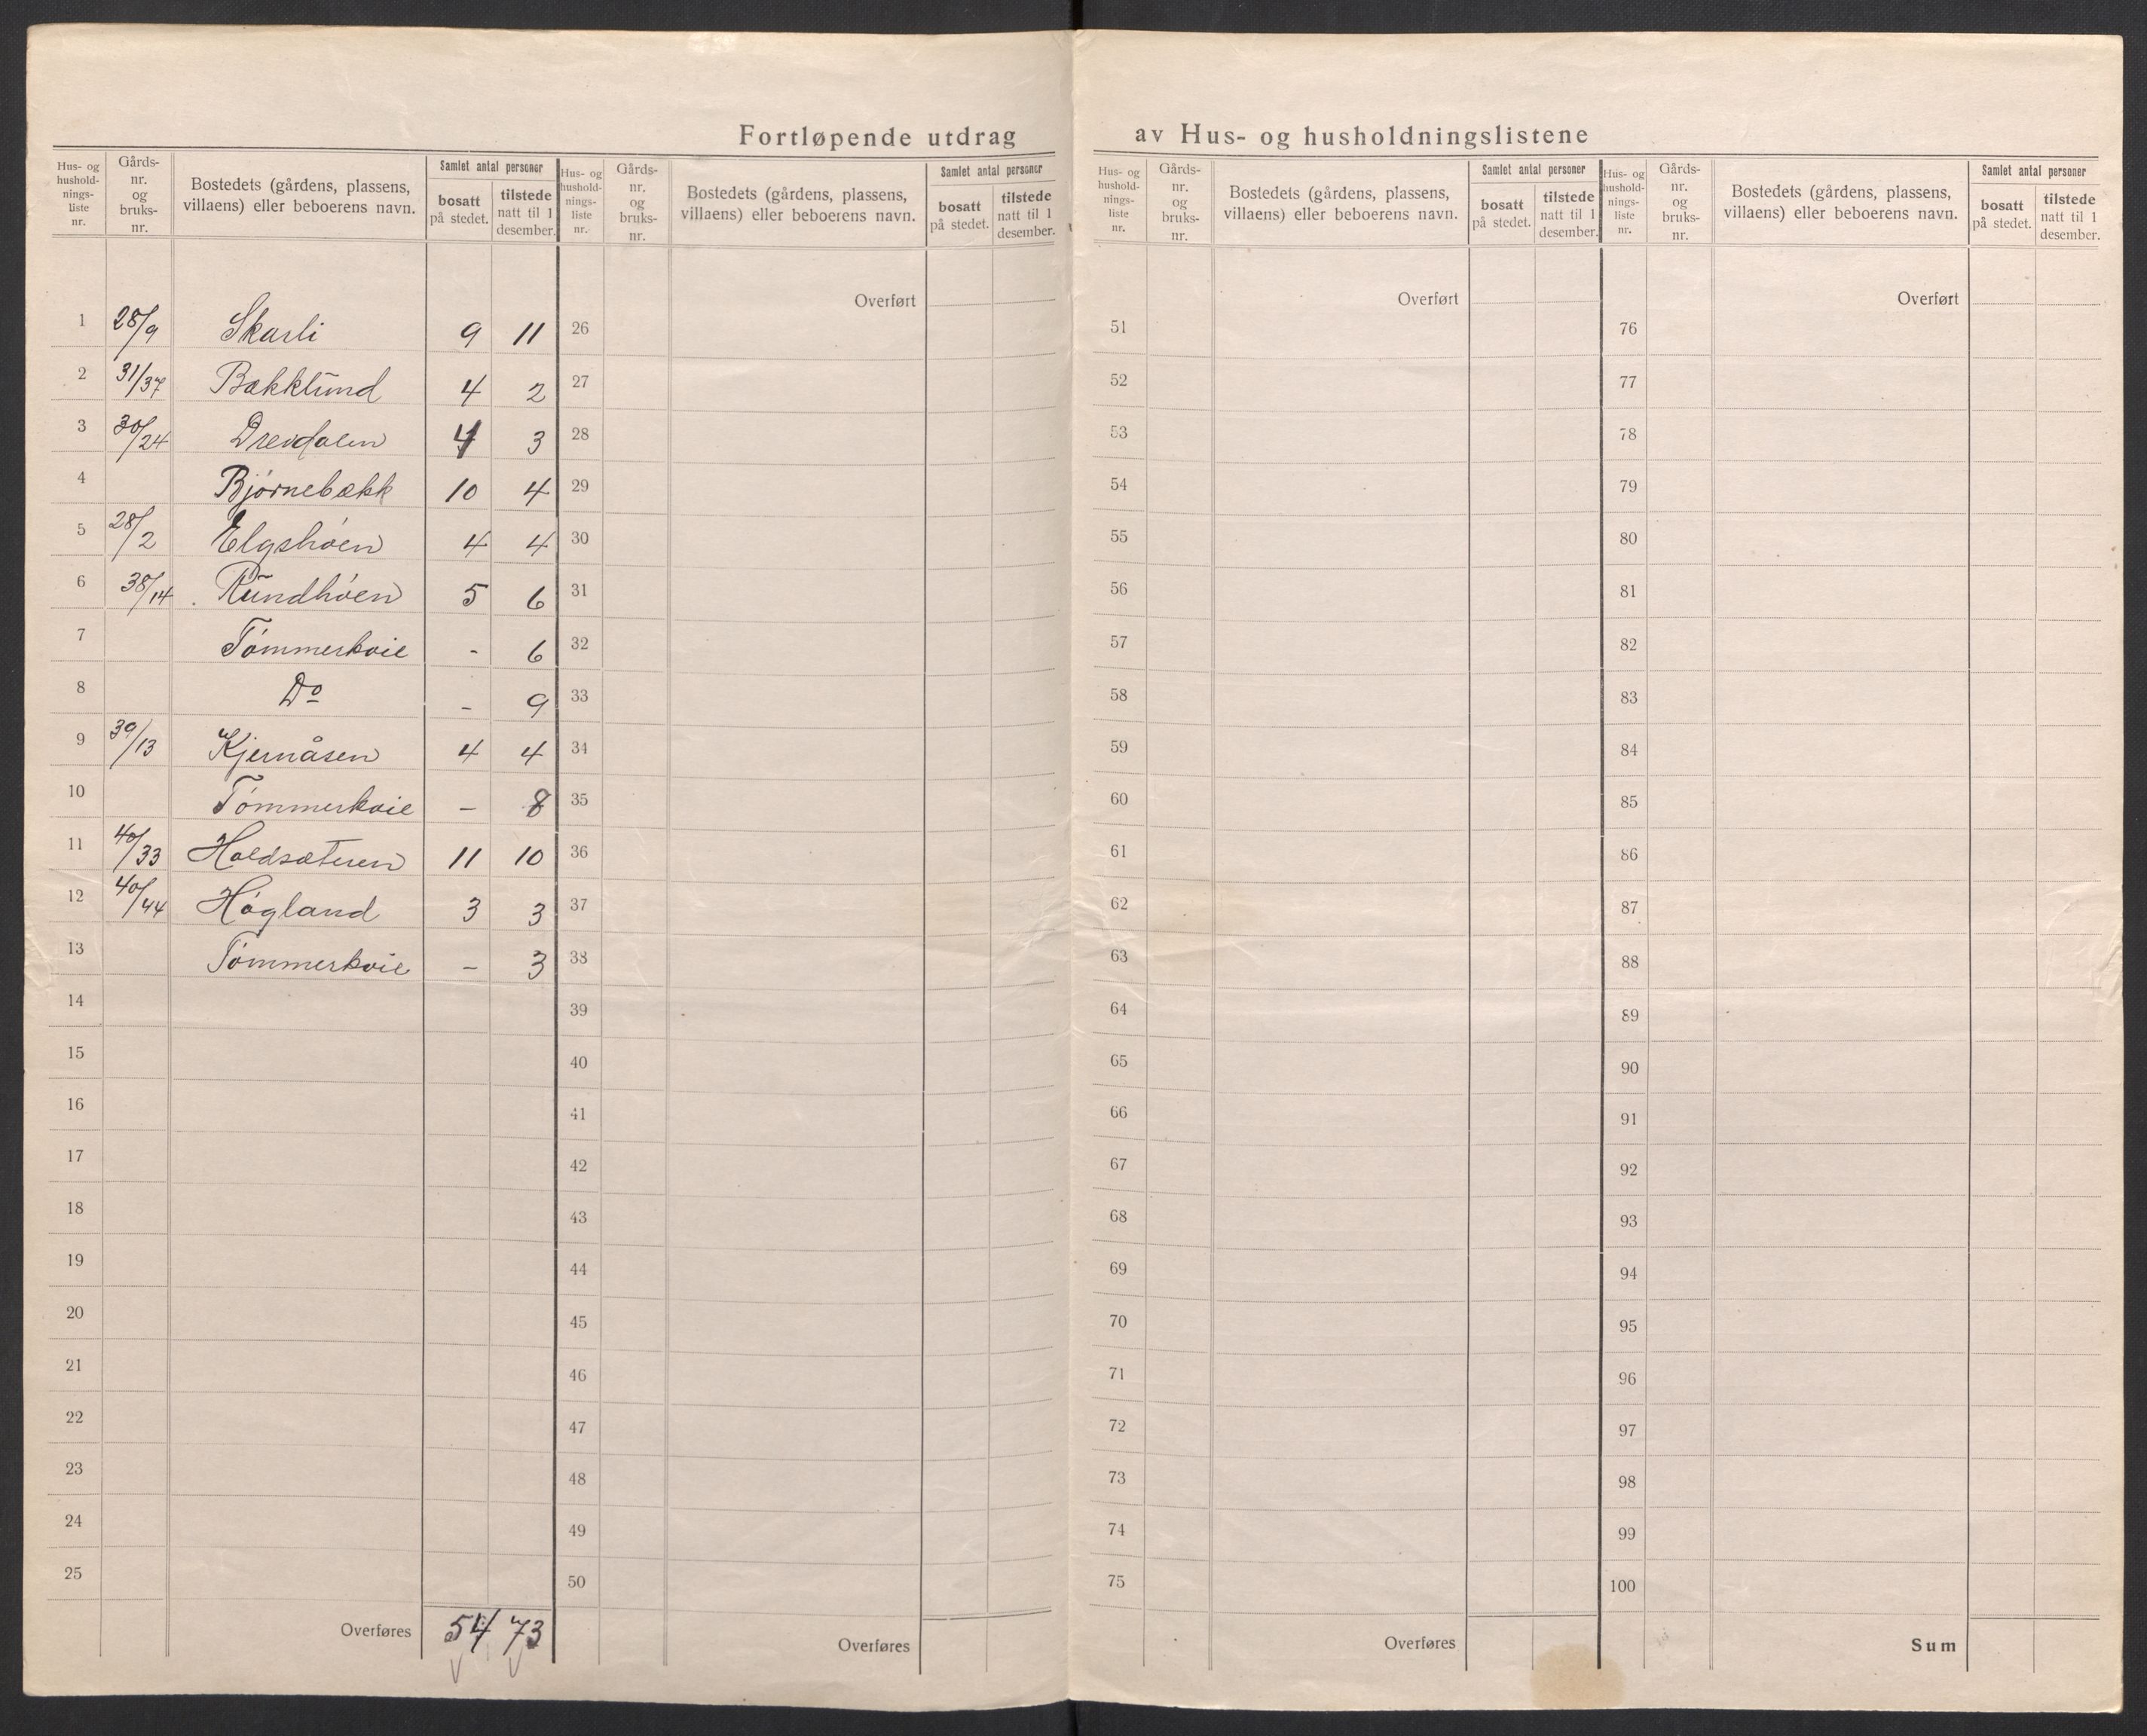 Fortløpende utdrag av Hus- og husholdningslistene
Hus- og hushold- nings- liste nr. | Gårds- nr. og bruks- nr. | Bostedets (gårdens, plassens, villaens) eller beboerens navn. | Samlet antal personer | bosatt på stedet. | tilstede natt til 1 desember.
1 28/9 Skarli 9 11
2 31/37 Bækklund 4 2
3 30/24 Drevdalen 4 3
4 Bjørnebækk 10 4
5 28/2 Elgshøen 4 4
6 38/14 Rundhøen 5 6
7 Tømmerkoie - 6
8 Do - 9
9 39/13 Kjernåsen 4 4
10 Tømmerkoie - 8
11 40/33 Holdsæteren 11 10
12 40/44 Høgland 3 3
13 Tømmerkoie - 3
14
15
16
17
18
19
20
21
22
23
24
25
Overføres 54 73
Hus- og hushold- nings- liste nr. | Gårds- nr. og bruks- nr. | Bostedets (gårdens, plassens, villaens) eller beboerens navn. | Samlet antal personer | bosatt på stedet. | tilstede natt til 1 desember.
Overført
26
27
28
29
30
31
32
33
34
35
36
37
38
39
40
41
42
43
44
45
46
47
48
49
50
Overføres
Hus- og hushold- nings- liste nr. | Gårds- nr. og bruks- nr. | Bostedets (gårdens, plassens, villaens) eller beboerens navn. | Samlet antal personer | bosatt på stedet. | tilstede natt til 1 desember.
Overført
51
52
53
54
55
56
57
58
59
60
61
62
63
64
65
66
67
68
69
70
71
72
73
74
75
Overføres
Hus- og hushold- nings- liste nr. | Gårds- nr. og bruks- nr. | Bostedets (gårdens, plassens, villaens) eller beboerens navn. | Samlet antal personer | bosatt på stedet. | tilstede natt til 1 desember.
Overført
76
77
78
79
80
81
82
83
84
85
86
87
88
89
90
91
92
93
94
95
96
97
98
99
100
Sum